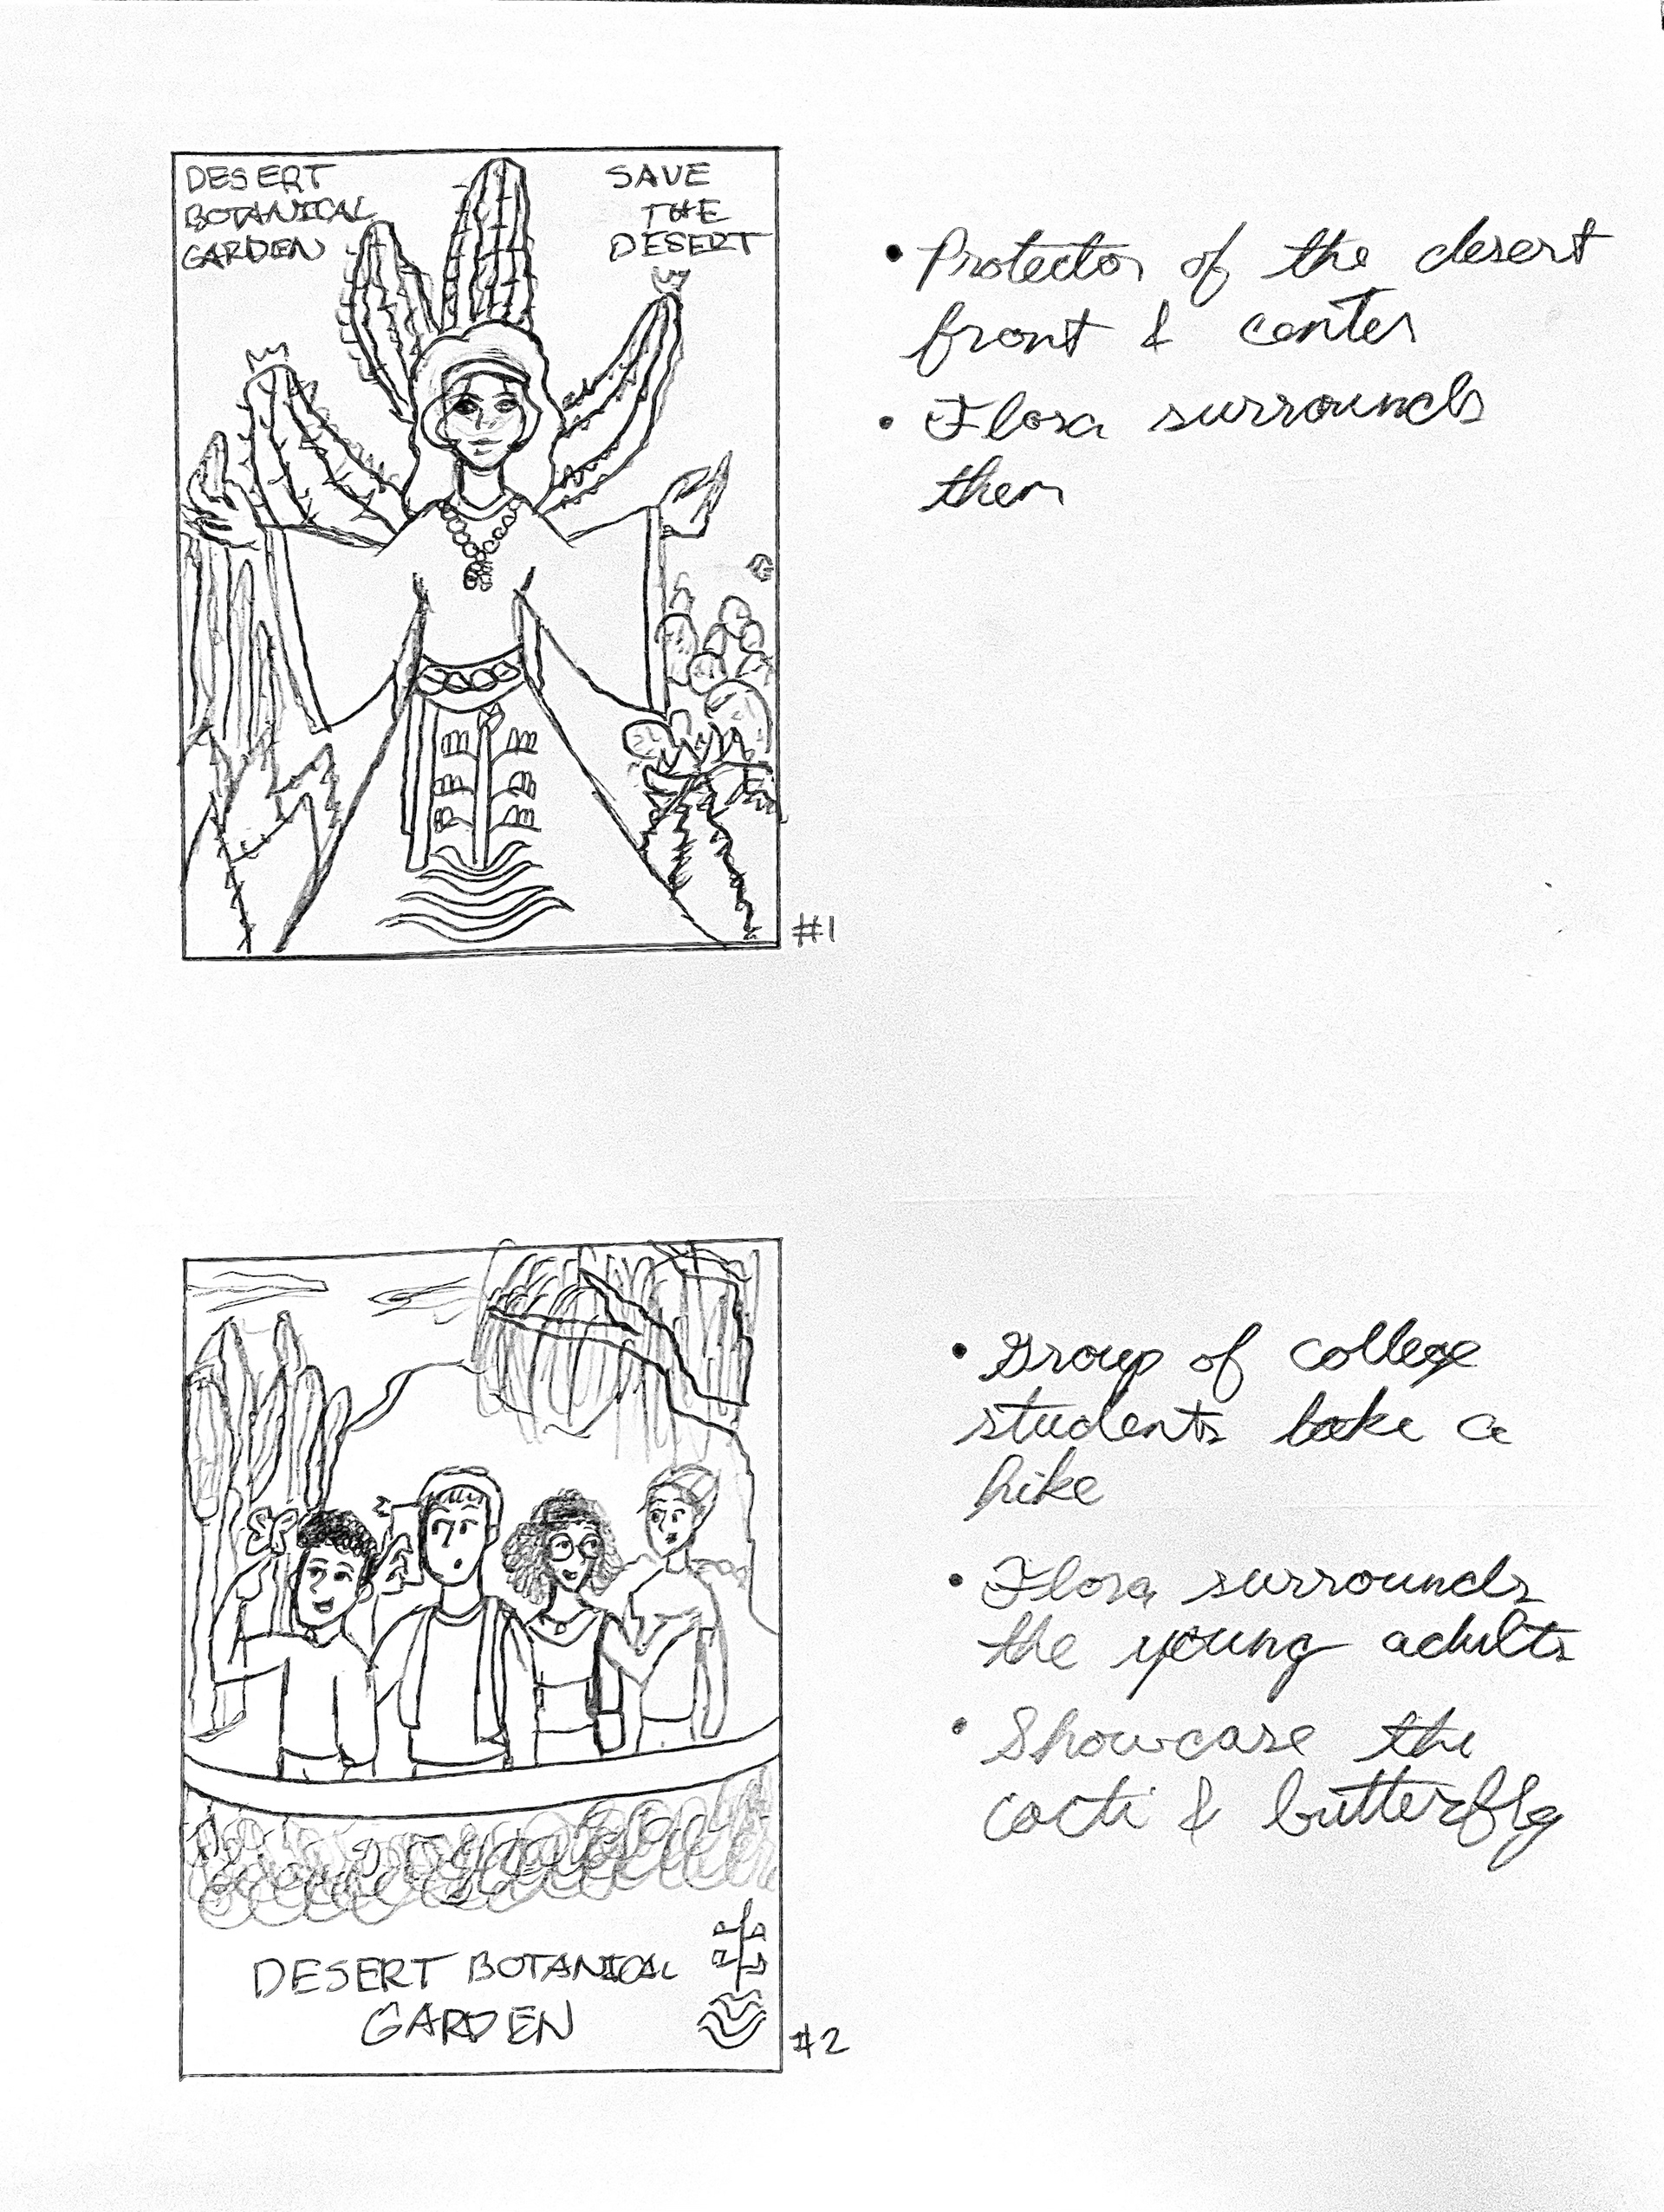 DESERT
BOTANICAL
GARDEN
SAVE
THE
DESERT
• Protector of the desert
front & center
• Flora surrounds
them
#1
• Group of college
students take a
hike
• Flora surrounds
the young adults
• Showcase the
cacti & butterfly
DESERT BOTANICAL
GARDEN
#2